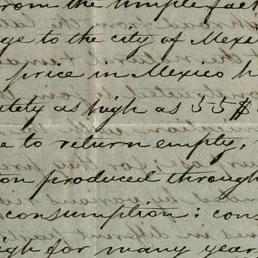 from the simple fact
ge to the city of Mexi
price in Mexico h
tely as high as 55$
e to return empty,
ton produced through
consumption: cons
igh for many year